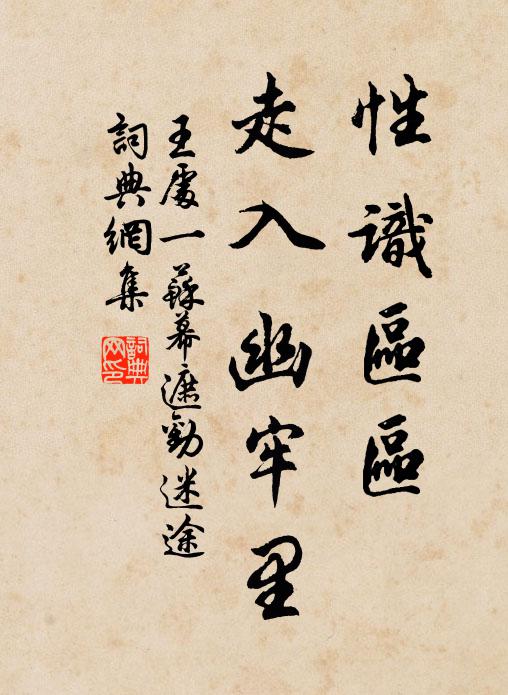 性識區區
走入幽牢里
王處一蘇幕遮勸迷途
詞典網集
詞典网印